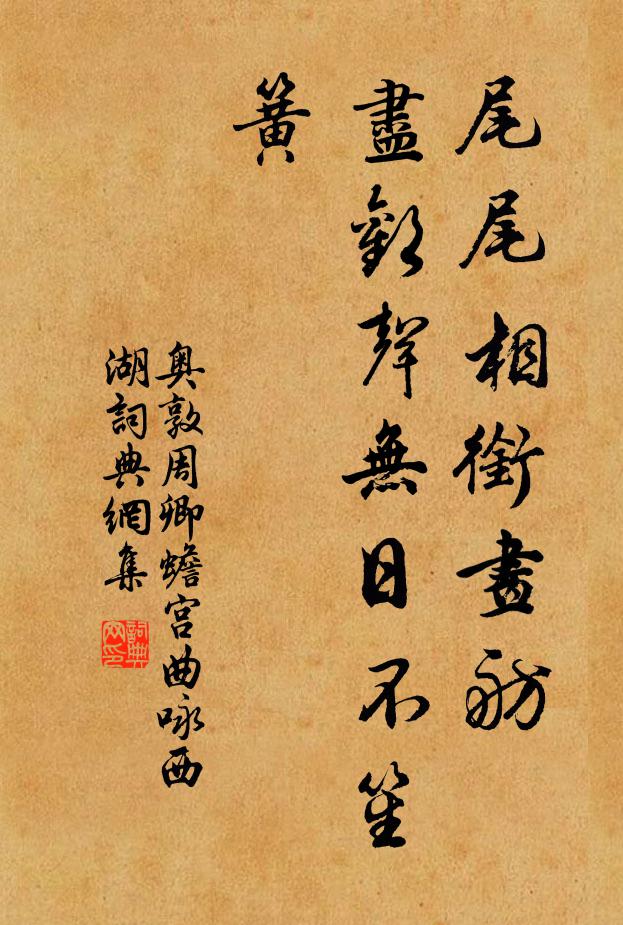 尾尾相銜畫舫
盡歡聲無日不笙
簧
奥敦周卿蟾宫曲咏西
湖詞典網集
詞典
网印